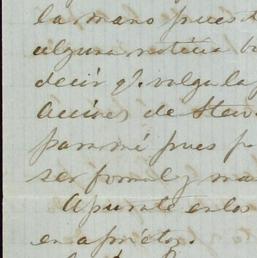 la mano pues
alguna noticia
decir q. valga la
Acciones de
para mí pues p
ser formal y ma
Apurate en los
en aprietos.